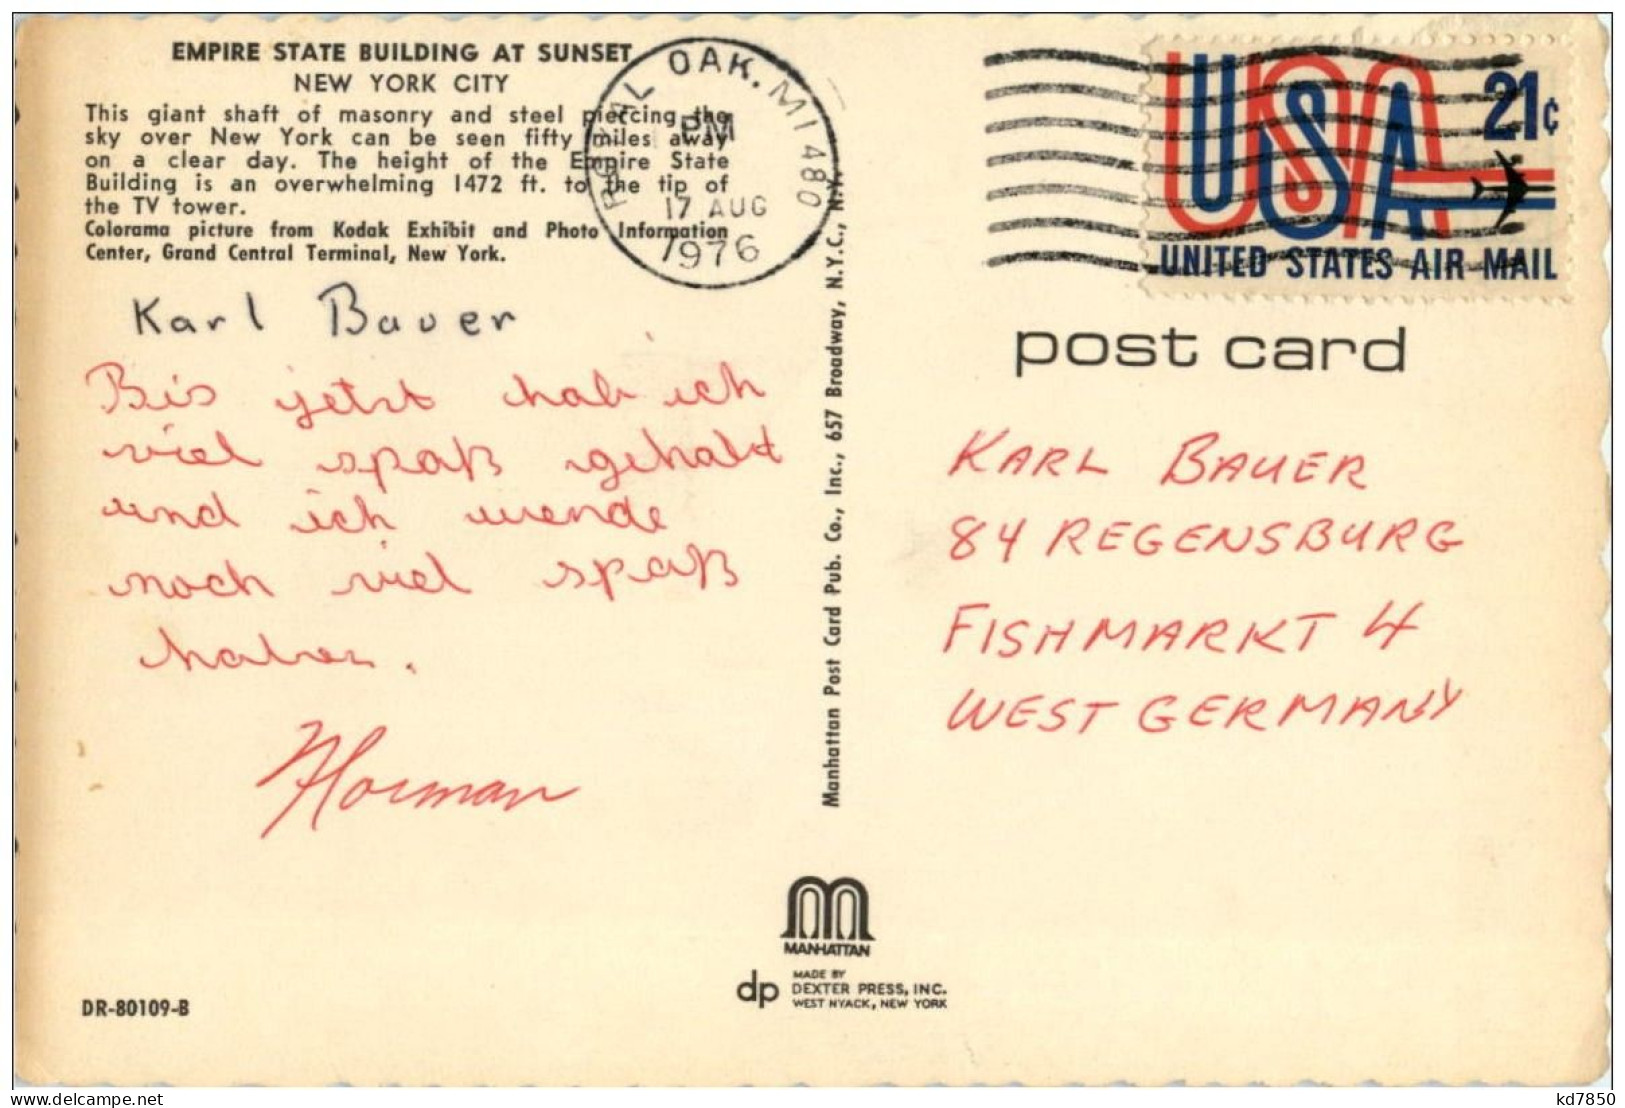 EMPIRE STATE BUILDING AT SUNSET
NEW YORK CITY
This giant shaft of masonry and steel piercing the
sky over New York can be seen fifty miles away
on a clear day. The height of the Empire State
Building is an overwhelming 1472 ft. to the tip of
the TV tower.
Colorama picture from Kodak Exhibit and Photo Information
Center, Grand Central Terminal, New York.
ROYAL OAK. MI 480
PM
17 AUG
1976
USA
21¢
UNITED STATES AIR MAIL
post card
Karl Bauer
Bis jetzt hab ich
viel spaß gehabt
und ich werde
noch viel spaß
haben.
Norman
Manhattan Post Card Pub. Co., Inc., 657 Broadway, N.Y.C., N.Y.
KARL BAUER
84 REGENSBURG
FISHMARKT 4
WEST GERMANY
MANHATTAN
dp
MADE BY
DEXTER PRESS, INC.
WEST NYACK, NEW YORK
DR-80109-B
kd7850
delcampe.net